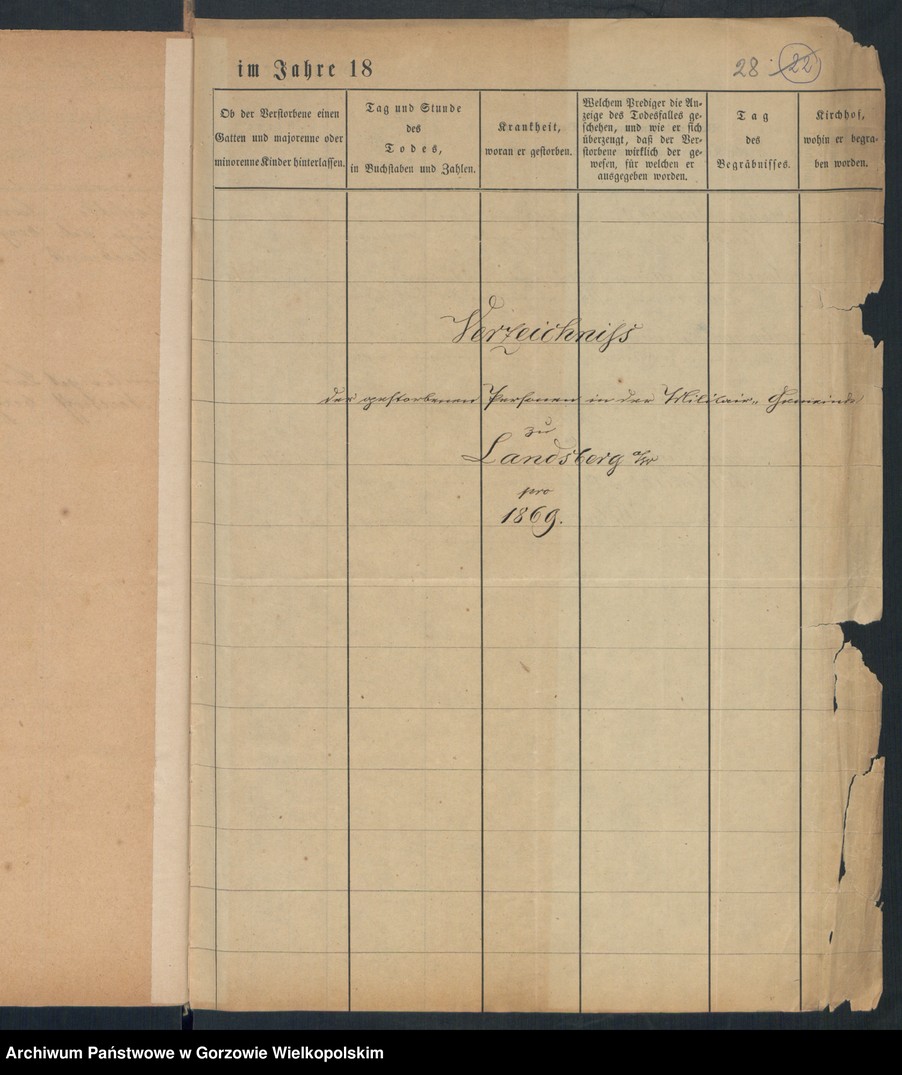 im Jahre 18
28. 22
Ob der Verstorbene einen
Gatten und majorenne oder
minorenne Kinder hinterlassen.
Tag und Stunde
des
Todes,
in Buchstaben und Zahlen.
Krankheit,
woran er gestorben.
Welchem Prediger die An-
zeige des Todesfalles ge-
schehen, und wie er sich
überzeugt, daß der Ver-
storbene wirklich der ge-
wesen, für welchen er
ausgegeben worden.
Tag
des
Begräbnisses.
Kirchhof,
wohin er begra-
ben worden.
Verzeichniss
der gestorbenen Personen in der Militair-Gemeinde
zu
Landsberg a/W
pro
1869.
Archiwum Państwowe w Gorzowie Wielkopolskim